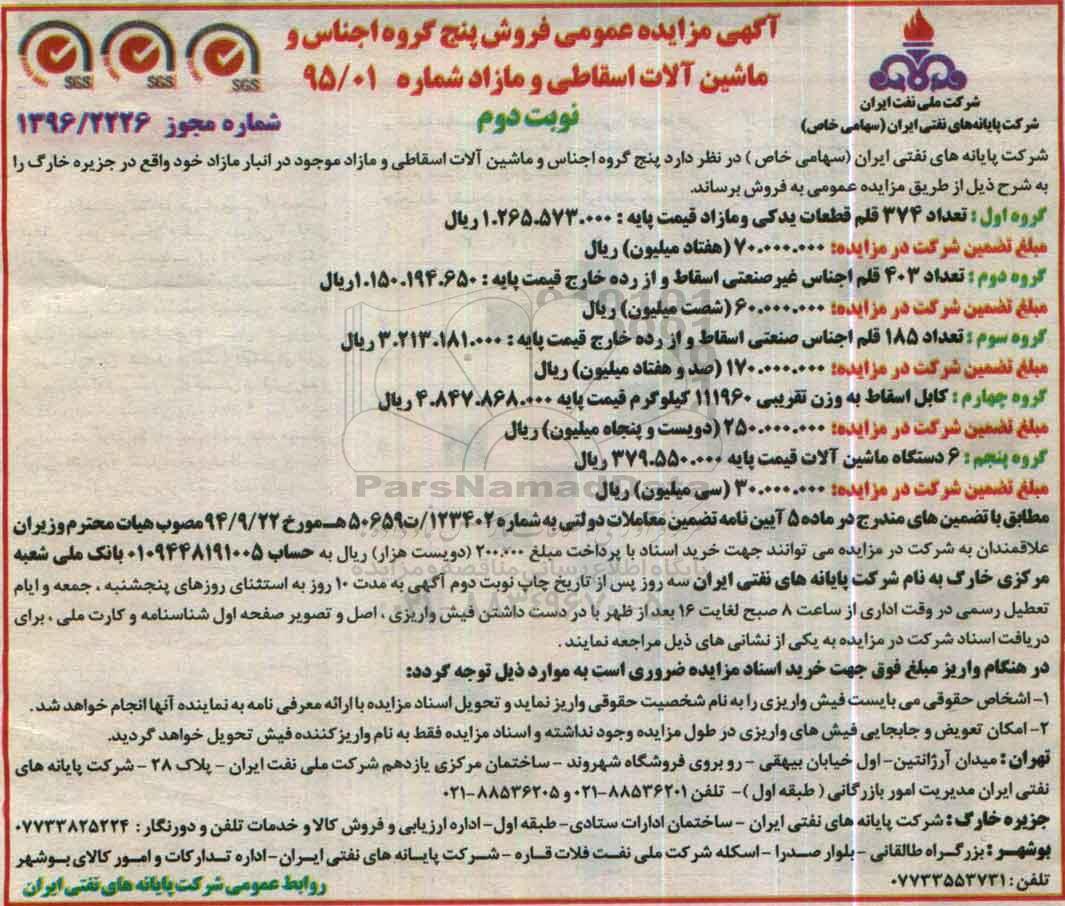 آگهی مزایده عمومی فروش پنج گروه اجناس و
ماشین آلات اسقاطی و مازاد شماره ۹۵/۰۱
نوبت دوم
شماره مجوز ۱۳۹۶/۲۲۲۶
SGS SGS SGS
شرکت ملی نفت ایران
شرکت پایانه‌های نفتی ایران (سهامی خاص)
شرکت پایانه های نفتی ایران (سهامی خاص) در نظر دارد پنج گروه اجناس و ماشین آلات اسقاطی و مازاد موجود در انبار مازاد خود واقع در جزیره خارگ را
به شرح ذیل از طریق مزایده عمومی به فروش برساند.
گروه اول : تعداد ۳۷۴ قلم قطعات یدکی ومازاد قیمت پایه : ۱.۲۶۵.۵۷۳.۰۰۰ ریال
مبلغ تضمین شرکت در مزایده: ۷۰.۰۰۰.۰۰۰ (هفتاد میلیون) ریال
گروه دوم : تعداد ۴۰۳ قلم اجناس غیرصنعتی اسقاط و از رده خارج قیمت پایه : ۱.۱۵۰.۱۹۴.۶۵۰ریال
مبلغ تضمین شرکت در مزایده: ۶۰.۰۰۰.۰۰۰ (شصت میلیون) ریال
گروه سوم : تعداد ۱۸۵ قلم اجناس صنعتی اسقاط و از رده خارج قیمت پایه : ۳.۲۱۳.۱۸۱.۰۰۰ ریال
مبلغ تضمین شرکت در مزایده: ۱۷۰.۰۰۰.۰۰۰ (صد و هفتاد میلیون) ریال
گروه چهارم : کابل اسقاط به وزن تقریبی ۱۱۱۹۶۰ کیلوگرم قیمت پایه ۴.۸۴۷.۸۶۸.۰۰۰ ریال
مبلغ تضمین شرکت در مزایده: ۲۵۰.۰۰۰.۰۰۰ (دویست و پنجاه میلیون) ریال
گروه پنجم : ۶ دستگاه ماشین آلات قیمت پایه ۳۷۹.۵۵۰.۰۰۰ ریال
مبلغ تضمین شرکت در مزایده: ۳۰.۰۰۰.۰۰۰ (سی میلیون) ریال
ParsNamadData
مطابق با تضمین های مندرج در ماده ۵ آیین نامه تضمین معاملات دولتی به شماره ۱۲۳۴۰۲/ت۵۰۶۵۹ هـ مورخ ۹۴/۹/۲۲ مصوب هیات محترم وزیران
علاقمندان به شرکت در مزایده می توانند جهت خرید اسناد با پرداخت مبلغ ۲۰۰.۰۰۰ (دویست هزار) ریال به حساب ۰۱۰۹۴۴۸۱۹۱۰۰۵ بانک ملی شعبه
مرکزی خارگ به نام شرکت پایانه های نفتی ایران سه روز پس از تاریخ چاپ نوبت دوم آگهی به مدت ۱۰ روز به استثنای روزهای پنجشنبه ، جمعه و ایام
تعطیل رسمی در وقت اداری از ساعت ۸ صبح لغایت ۱۶ بعد از ظهر با در دست داشتن فیش واریزی ، اصل و تصویر صفحه اول شناسنامه و کارت ملی ، برای
دریافت اسناد شرکت در مزایده به یکی از نشانی های ذیل مراجعه نمایند .
در هنگام واریز مبلغ فوق جهت خرید اسناد مزایده ضروری است به موارد ذیل توجه گردد:
۱- اشخاص حقوقی می بایست فیش واریزی را به نام شخصیت حقوقی واریز نماید و تحویل اسناد مزایده با ارائه معرفی نامه به نماینده آنها انجام خواهد شد.
۲- امکان تعویض و جابجایی فیش های واریزی در طول مزایده وجود نداشته و اسناد مزایده فقط به نام واریز کننده فیش تحویل خواهد گردید.
تهران : میدان آرژانتین- اول خیابان بیهقی - رو بروی فروشگاه شهروند - ساختمان مرکزی یازدهم شرکت ملی نفت ایران - پلاک ۲۸ - شرکت پایانه های
نفتی ایران مدیریت امور بازرگانی ( طبقه اول )- تلفن ۸۸۵۳۶۲۰۱-۰۲۱ و ۸۸۵۳۶۲۰۵-۰۲۱
جزیره خارگ : شرکت پایانه های نفتی ایران - ساختمان ادارات ستادی- طبقه اول- اداره ارزیابی و فروش کالا و خدمات تلفن و دورنگار : ۰۷۷۳۳۸۲۵۲۲۴
بوشهر : بزرگراه طالقانی - بلوار صدرا - اسکله شرکت ملی نفت فلات قاره - شرکت پایانه های نفتی ایران-اداره تدارکات و امور کالای بوشهر
تلفن : ۰۷۷۳۳۵۵۳۷۳۱
روابط عمومی شرکت پایانه های نفتی ایران